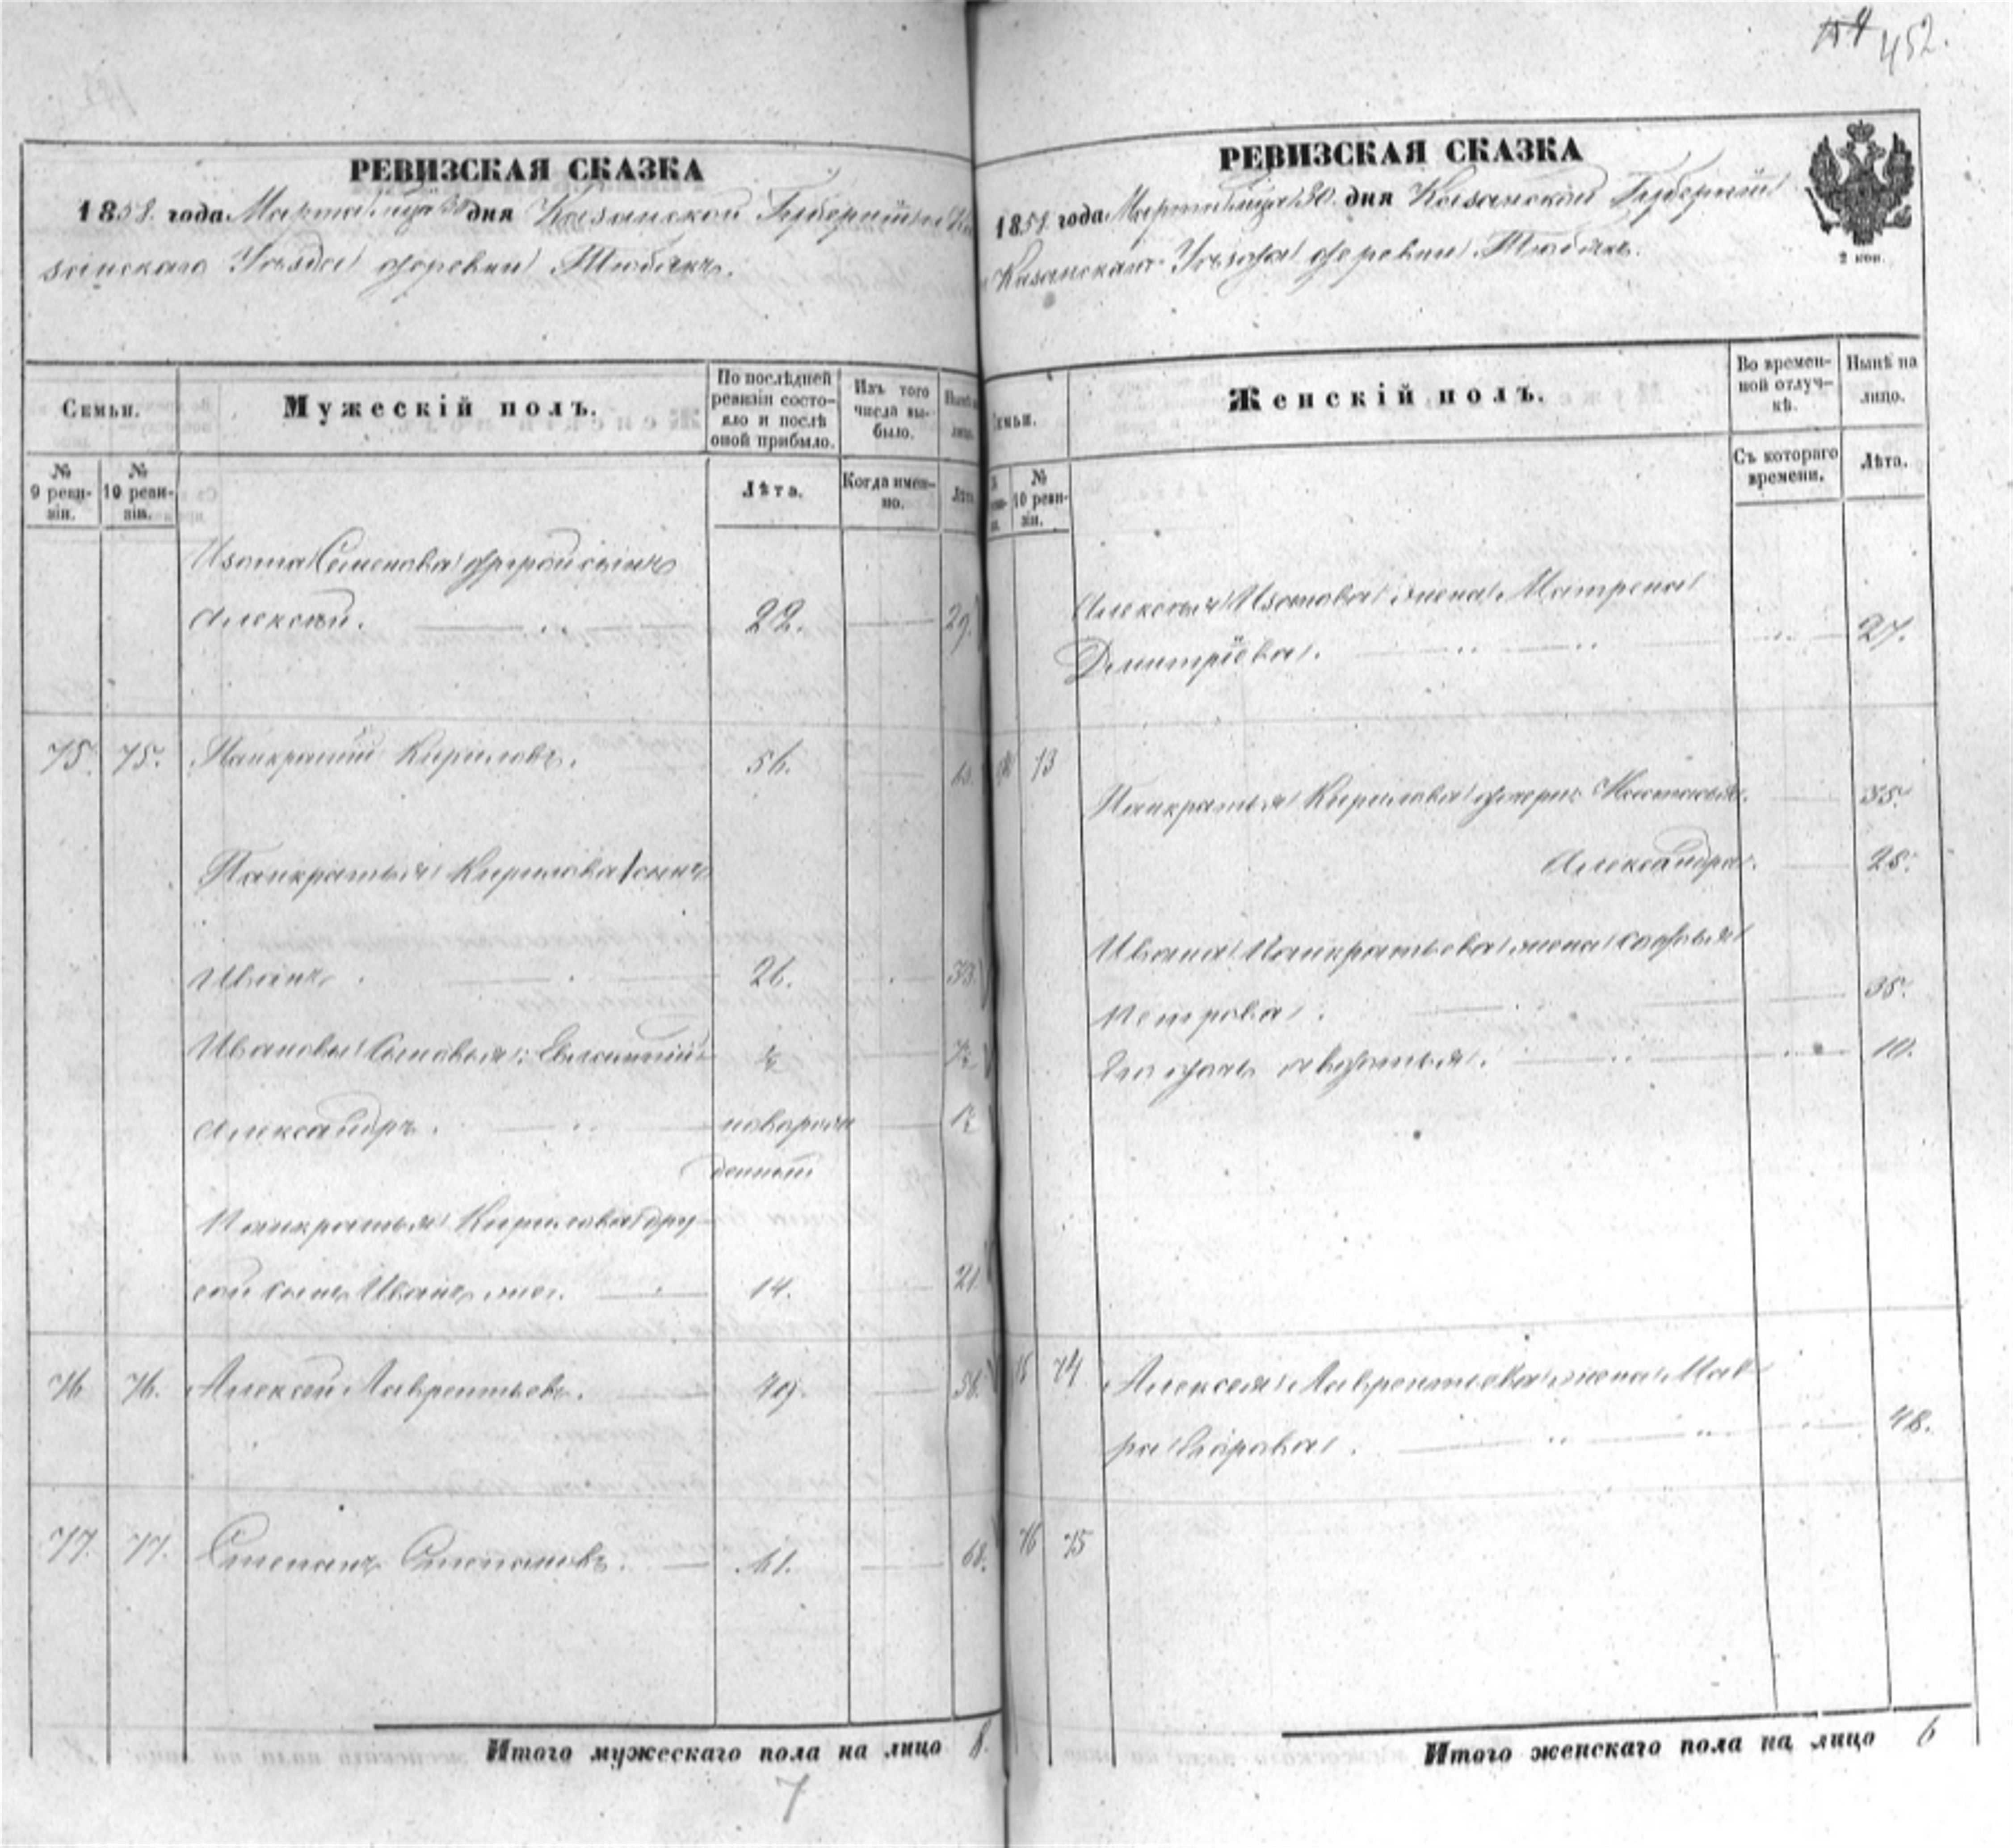 452.
РЕВИЗСКАЯ СКАЗКА
1858. года Марта м̃ца 30 дня Казанской Губернiи Ка
занскаго Уѣзда деревни Тюбякъ.
Семьи.
Мужескій полъ.
По послѣдней ревизіи состояло и послѣ оной прибыло.
Изъ того числа выбыло.
№ 9 ревизіи.
№ 10 ревизіи.
Лѣта.
Когда именно.
Лѣта.
Изота Семенова другой сынъ
Алексѣй. 22. 29.
75. 75. Панкратій Кириловъ. 56.
Панкратья Кирилова сынъ
Иванъ. 26. 33.
Ивановы сыновья:
Александръ. новорож
денный
Панкратья Кирилова дру
гой сынъ Иванъ же. 14. 21.
76 76. Алексѣй Лаврентьевъ. 49. 56.
77. 77. Степанъ Степановъ. 61. 68.
Итого мужескаго пола на лицо 8.
7
РЕВИЗСКАЯ СКАЗКА
1858. года Марта м̃ца 30. дня Казанской Губернiи
Казанскаго Уѣзда деревни Тюбякъ.
2 коп.
Семьи.
Женскій полъ.
Во временной отлучкѣ.
Нынѣ на лицо.
№ 10 ревизіи.
Съ котораго времени.
Лѣта.
Алексѣя Изотова жена Матрена
Дмитріева. 27.
73
Панкратья Кирилова дочери: Настасья. 35.
Александра. 28.
Ивана Панкратьева жена Софья
Петрова. 35.
Его дочь Авдотья. 10.
75 74 Алексѣя Лаврентьева жена Мав
ра Егорова. 48.
76 75
Итого женскаго пола на лицо 6